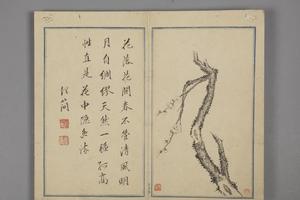 花落花開春不管清風明
月自綢繆天然一種孤高
性直是花中隱逸流